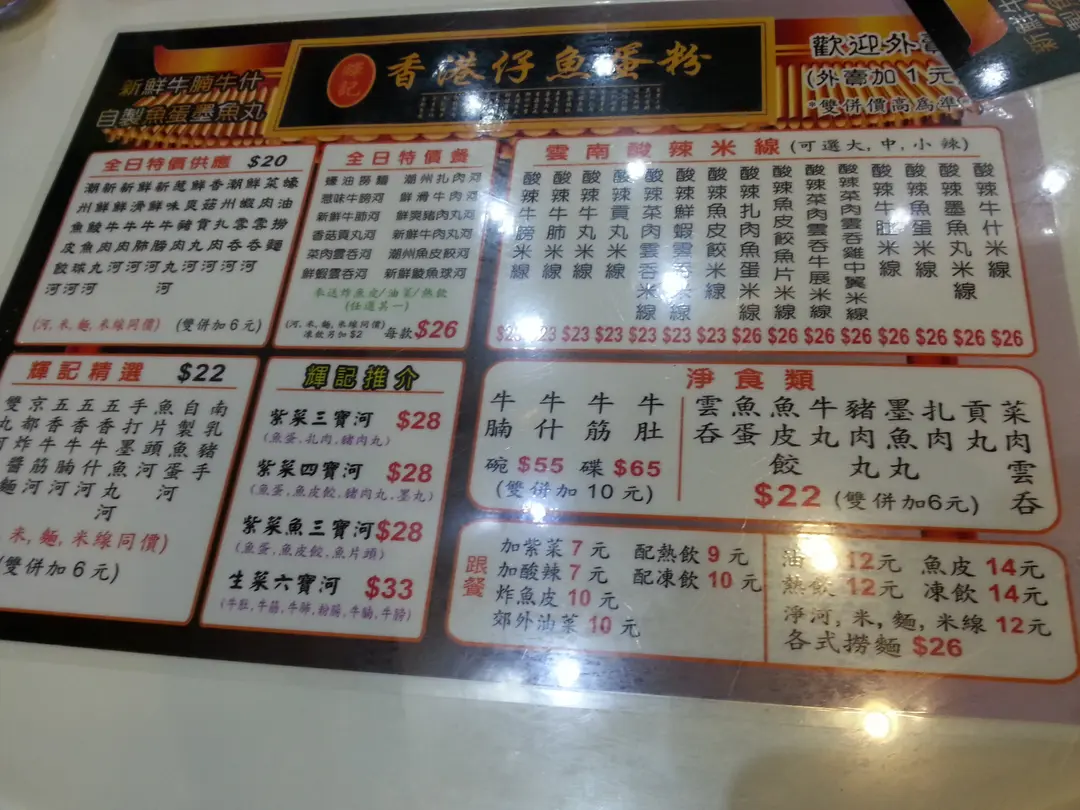 新鮮牛腩牛什
自製魚蛋墨魚丸
輝記
香港仔魚蛋粉
歡迎外賣
(外賣加1元
*雙併價高為準*
全日特價供應 $20
潮州魚皮餃河
新鮮鯪魚球河
新鮮牛肉丸河
鮮滑牛肉河
新鮮牛肺河
蔥味牛膀河
鮮爽豬肉丸河
香菇貢丸河
潮州扎肉河
鮮蝦雲吞河
菜肉雲吞河
蠔油撈麵
(河,米,麵,米線同價) (雙併加6元)
全日特價餐
蠔油撈麵 潮州扎肉河
蔥味牛膀河 鮮滑牛肉河
新鮮牛肺河 鮮爽豬肉丸河
香菇貢丸河 新鮮牛肉丸河
菜肉雲吞河 潮州魚皮餃河
鮮蝦雲吞河 新鮮鯪魚球河
奉送炸魚皮/油菜/熱飲
(任選其一)
(河,米,麵,米線同價)
凍飲另加$2 每款$26
雲南酸辣米線(可選大,中,小辣)
酸辣牛膀米線
酸辣牛肺米線
酸辣牛丸米線
酸辣貢丸米線
酸辣菜肉雲吞米線
酸辣鮮蝦雲吞米線
酸辣魚皮餃米線
酸辣扎肉魚蛋米線
酸辣魚皮餃魚片米線
酸辣菜肉雲吞牛展米線
酸辣菜肉雲吞雞中翼米線
酸辣牛肚米線
酸辣魚蛋米線
酸辣墨魚丸米線
酸辣牛什米線
$23 $23 $23 $23 $23 $23 $23 $26 $26 $26 $26 $26 $26 $26 $26
輝記精選 $22
雙丸河
京都炸醬麵
五香牛筋河
五香牛腩河
五香牛什河
手打墨魚丸河
魚片頭河
自製魚蛋河
南乳豬手
米,麵,米線同價)
(雙併加6元)
輝記推介
紫菜三寶河 $28
(魚蛋,扎肉,豬肉丸)
紫菜四寶河 $28
(魚蛋,魚皮餃,豬肉丸,墨丸)
紫菜魚三寶河$28
(魚蛋,魚皮餃,魚片頭)
生菜六寶河 $33
(牛肚,牛筋,牛肺,粉腸,牛腩,牛膀)
淨食類
牛腩
牛什
牛筋
牛肚
碗 $55 碟 $65
(雙併加10元)
雲吞
魚蛋
魚皮餃
牛丸
豬肉丸
墨魚丸
扎肉
貢丸
菜肉雲吞
$22 (雙併加6元)
跟餐
加紫菜7元 配熱飲9元
加酸辣7元 配凍飲10元
炸魚皮10元
郊外油菜10元
油 12元 魚皮14元
熱飲12元 凍飲14元
淨河,米,麵,米線12元
各式撈麵 $26